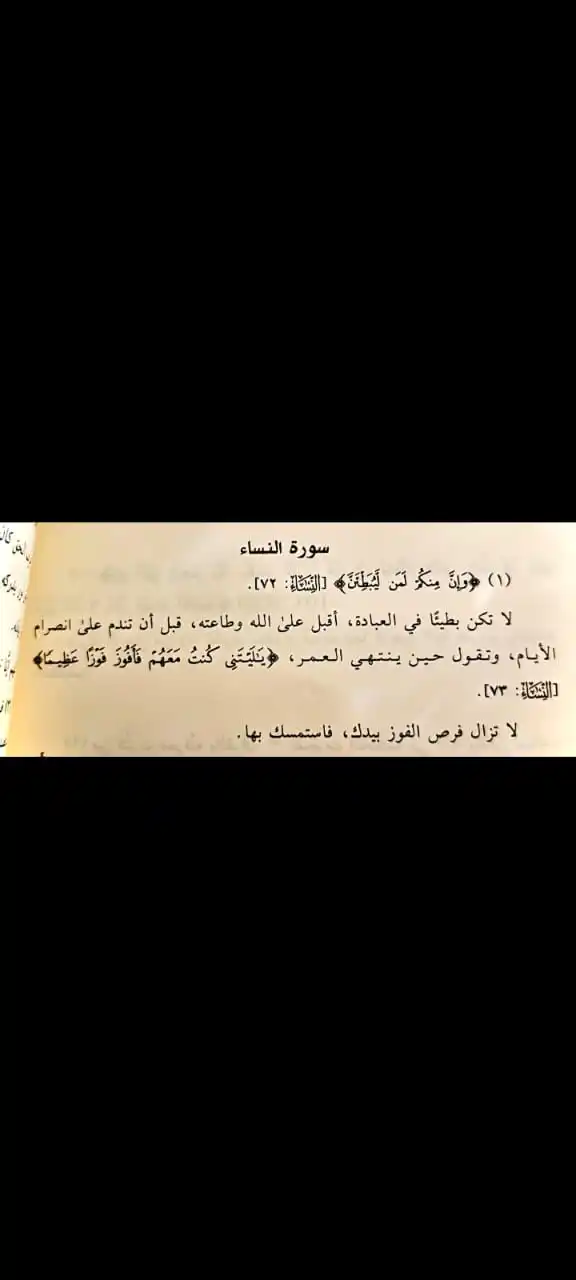 سورة النساء
(١) ﴿وَإِنَّ مِنكُمْ لَمَن لَّيُبَطِّئَنَّ﴾ [النِّسَاء: ٧٢].
لا تكن بطيئًا في العبادة، أقبل على الله وطاعته، قبل أن تندم على انصرام
الأيام، وتقول حين ينتهي العمر، ﴿يَٰلَيْتَنِي كُنتُ مَعَهُمْ فَأَفُوزَ فَوْزًا عَظِيمًا﴾
[النِّسَاء: ٧٣].
لا تزال فرص الفوز بيدك، فاستمسك بها.